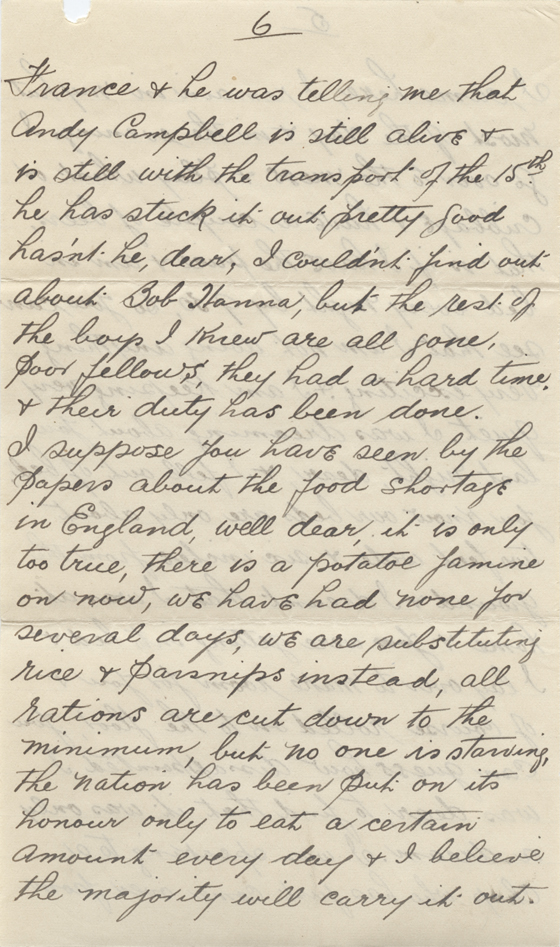 6
France & he was telling me that
Andy Campbell is still alive &
is still with the transport of the 15th
he has stuck it out pretty good
hasn't he, dear, I couldn't find out
about Bob Hanna, but the rest of
the boys I knew are all gone,
poor fellows, they had a hard time,
& their duty has been done.
I suppose you have seen by the
papers about the food shortage
in England, well dear, it is only
too true, there is a potatoe famine
on now, we have had none for
several days, we are substituting
rice & parsnips instead, all
rations are cut down to the
minimum, but no one is starving,
the nation has been put on its
honour only to eat a certain
amount every day & I believe
the majority will carry it out.